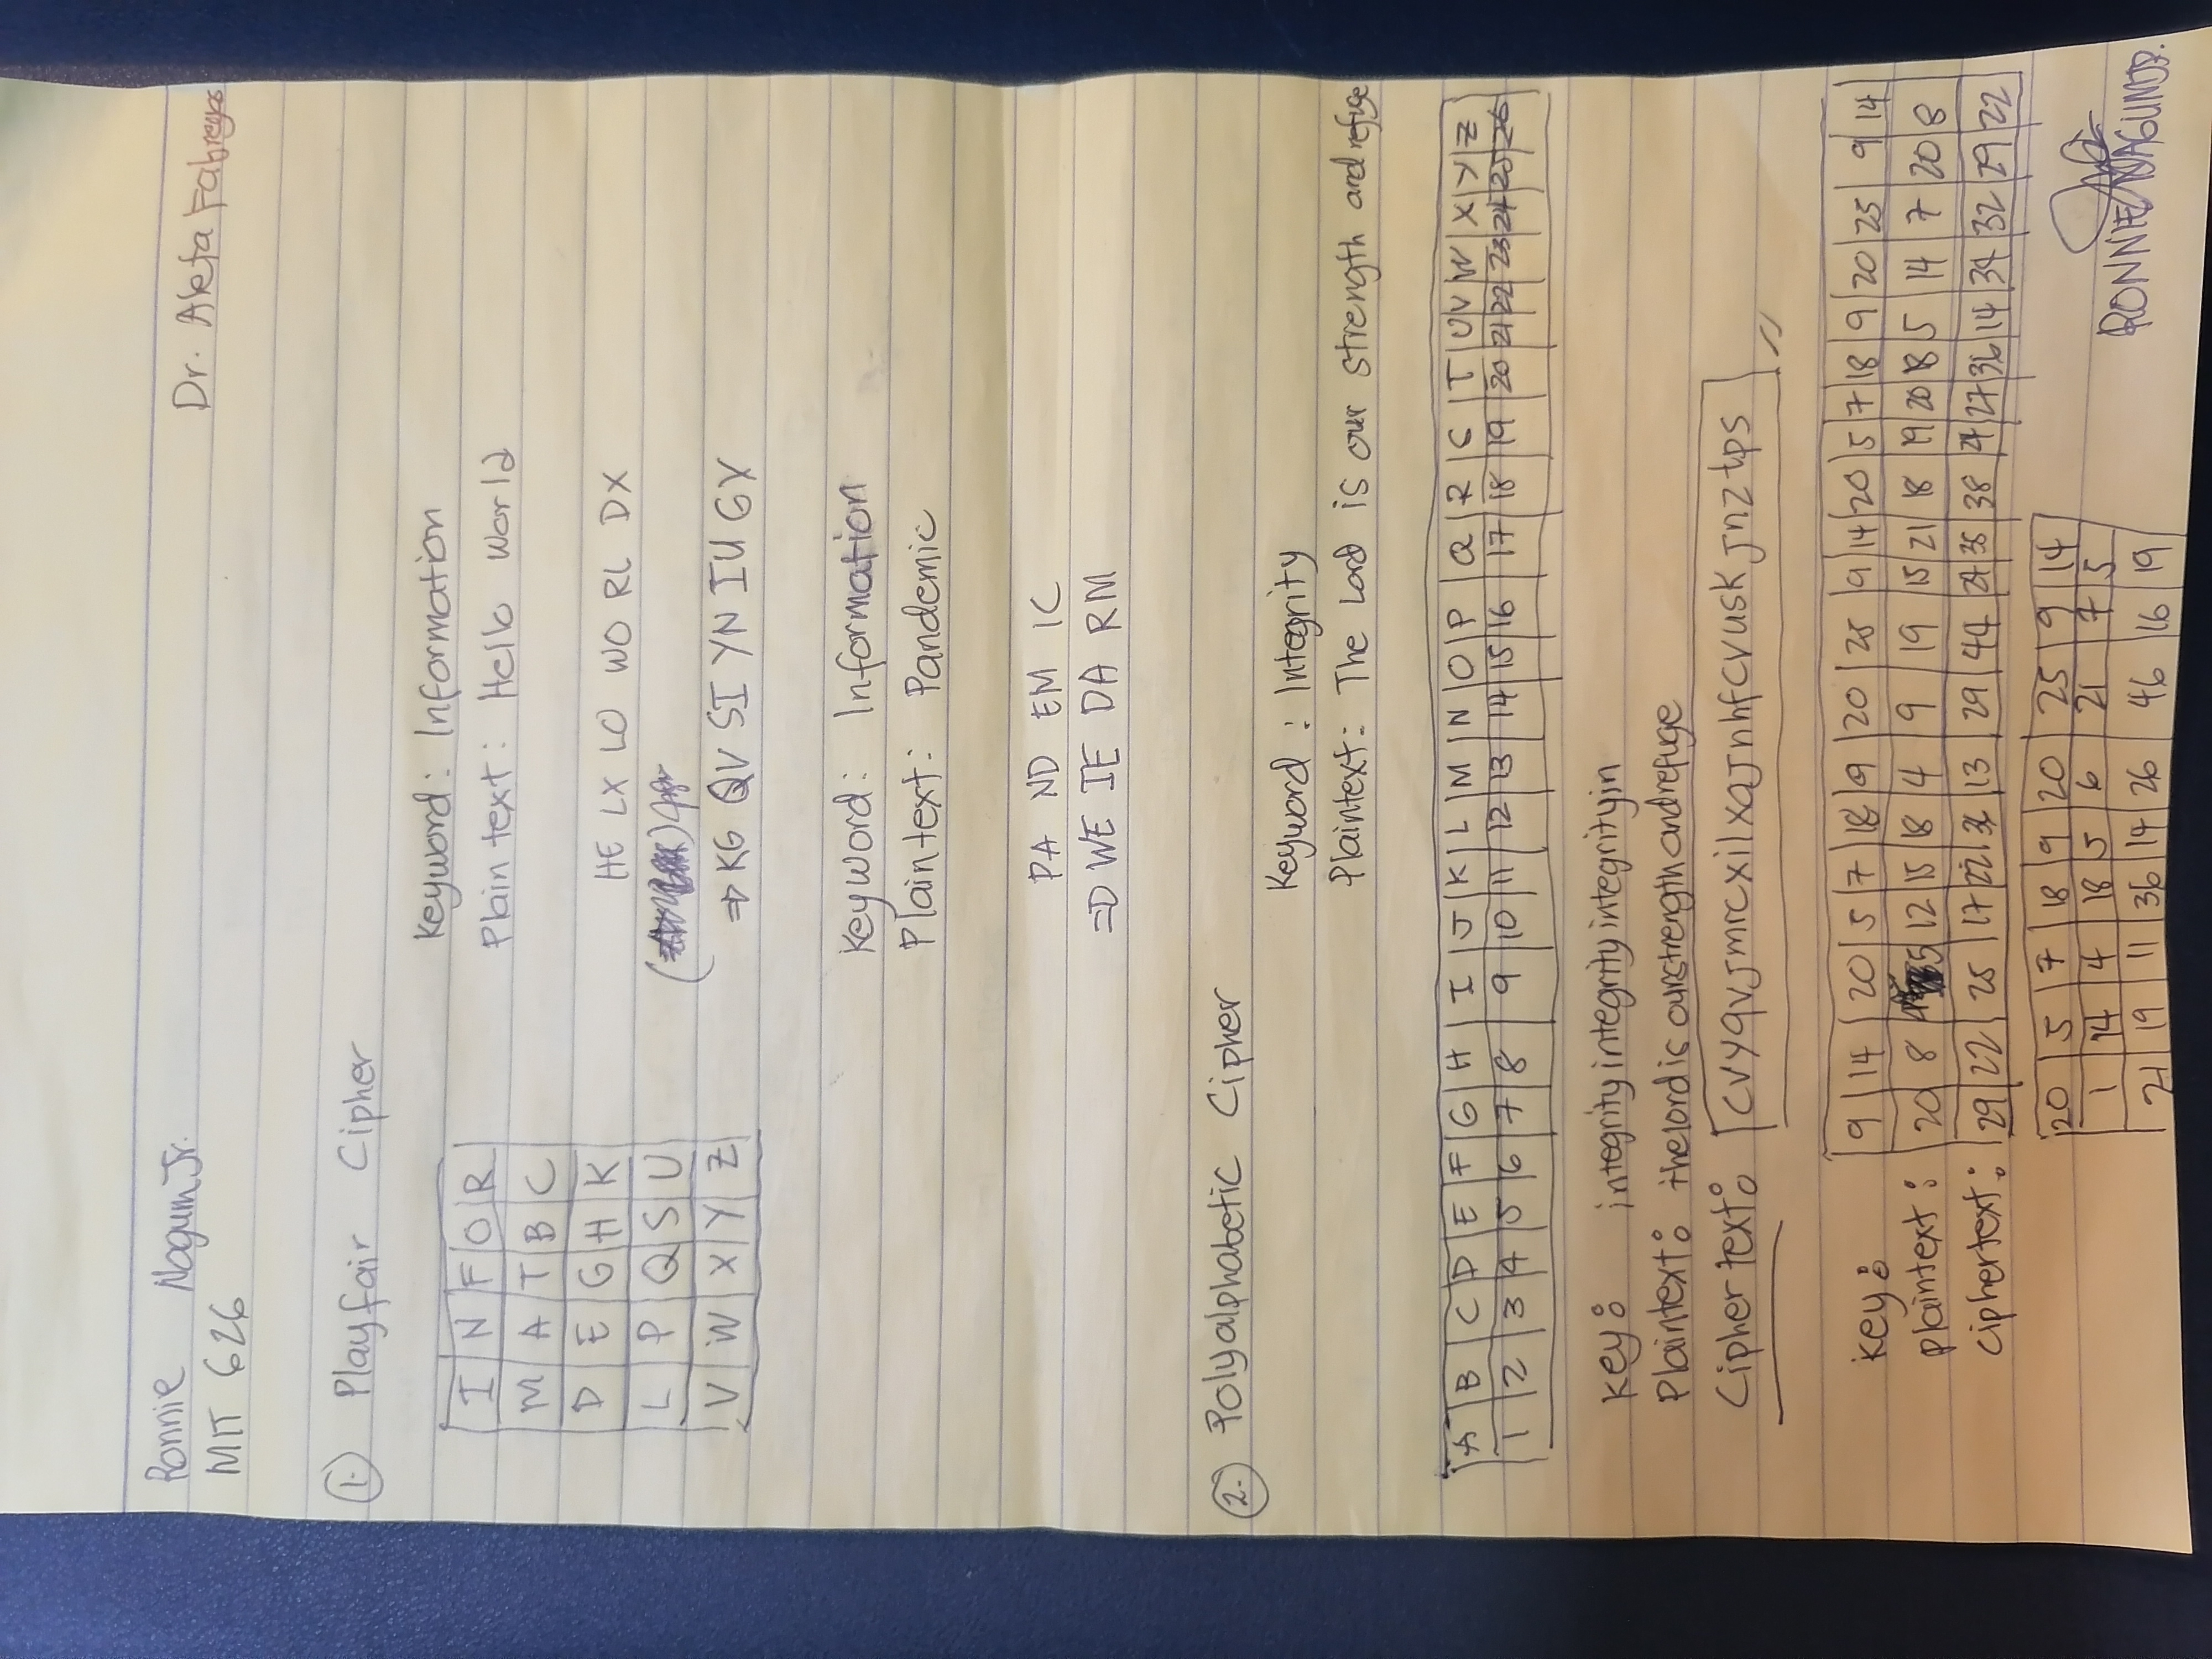 Ronnie Nagum Jr. Dr. Aleta Fabregas
MIT 626
1. Playfair Cipher
Keyword: Information
Plain text: Hello World
I N F O R
M A T B C
D E G H K
L P Q S U
V W X Y Z
HE LX LO WO RL DX
⇒ KG QV SI YN IU GV
Keyword: Information
Plaintext: Pandemic
PA ND EM IC
⇒ WE IE DA RM
2. Polyalphabetic Cipher
Keyword : Integrity
Plaintext: The Lord is our strength and refuge
A B C D E F G H I J K L M N O P Q R S T U V W X Y Z
1 2 3 4 5 6 7 8 9 10 11 12 13 14 15 16 17 18 19 20 21 22 23 24 25 26
Key: integrityintegrityintegrityin
Plaintext: thelordisourstrengthandrefuge
Ciphertext: cvyqvjmrcxilxajnhfcvuskjnztps
Key: 9 14 20 5 7 18 9 20 25 9 14 20 5 7 18 9 20 25 9 14
Plaintext: 20 8 5 12 15 18 4 9 19 15 21 18 19 20 18 5 14 7 20 8
Ciphertext: 29 22 25 17 22 36 13 29 44 24 35 38 24 27 36 14 34 32 29 22
20 5 7 18 9 20 25 9 14
1 14 4 18 5 6 21 7 5
21 19 11 36 14 26 46 16 19
RONNIE NAGUM JR.